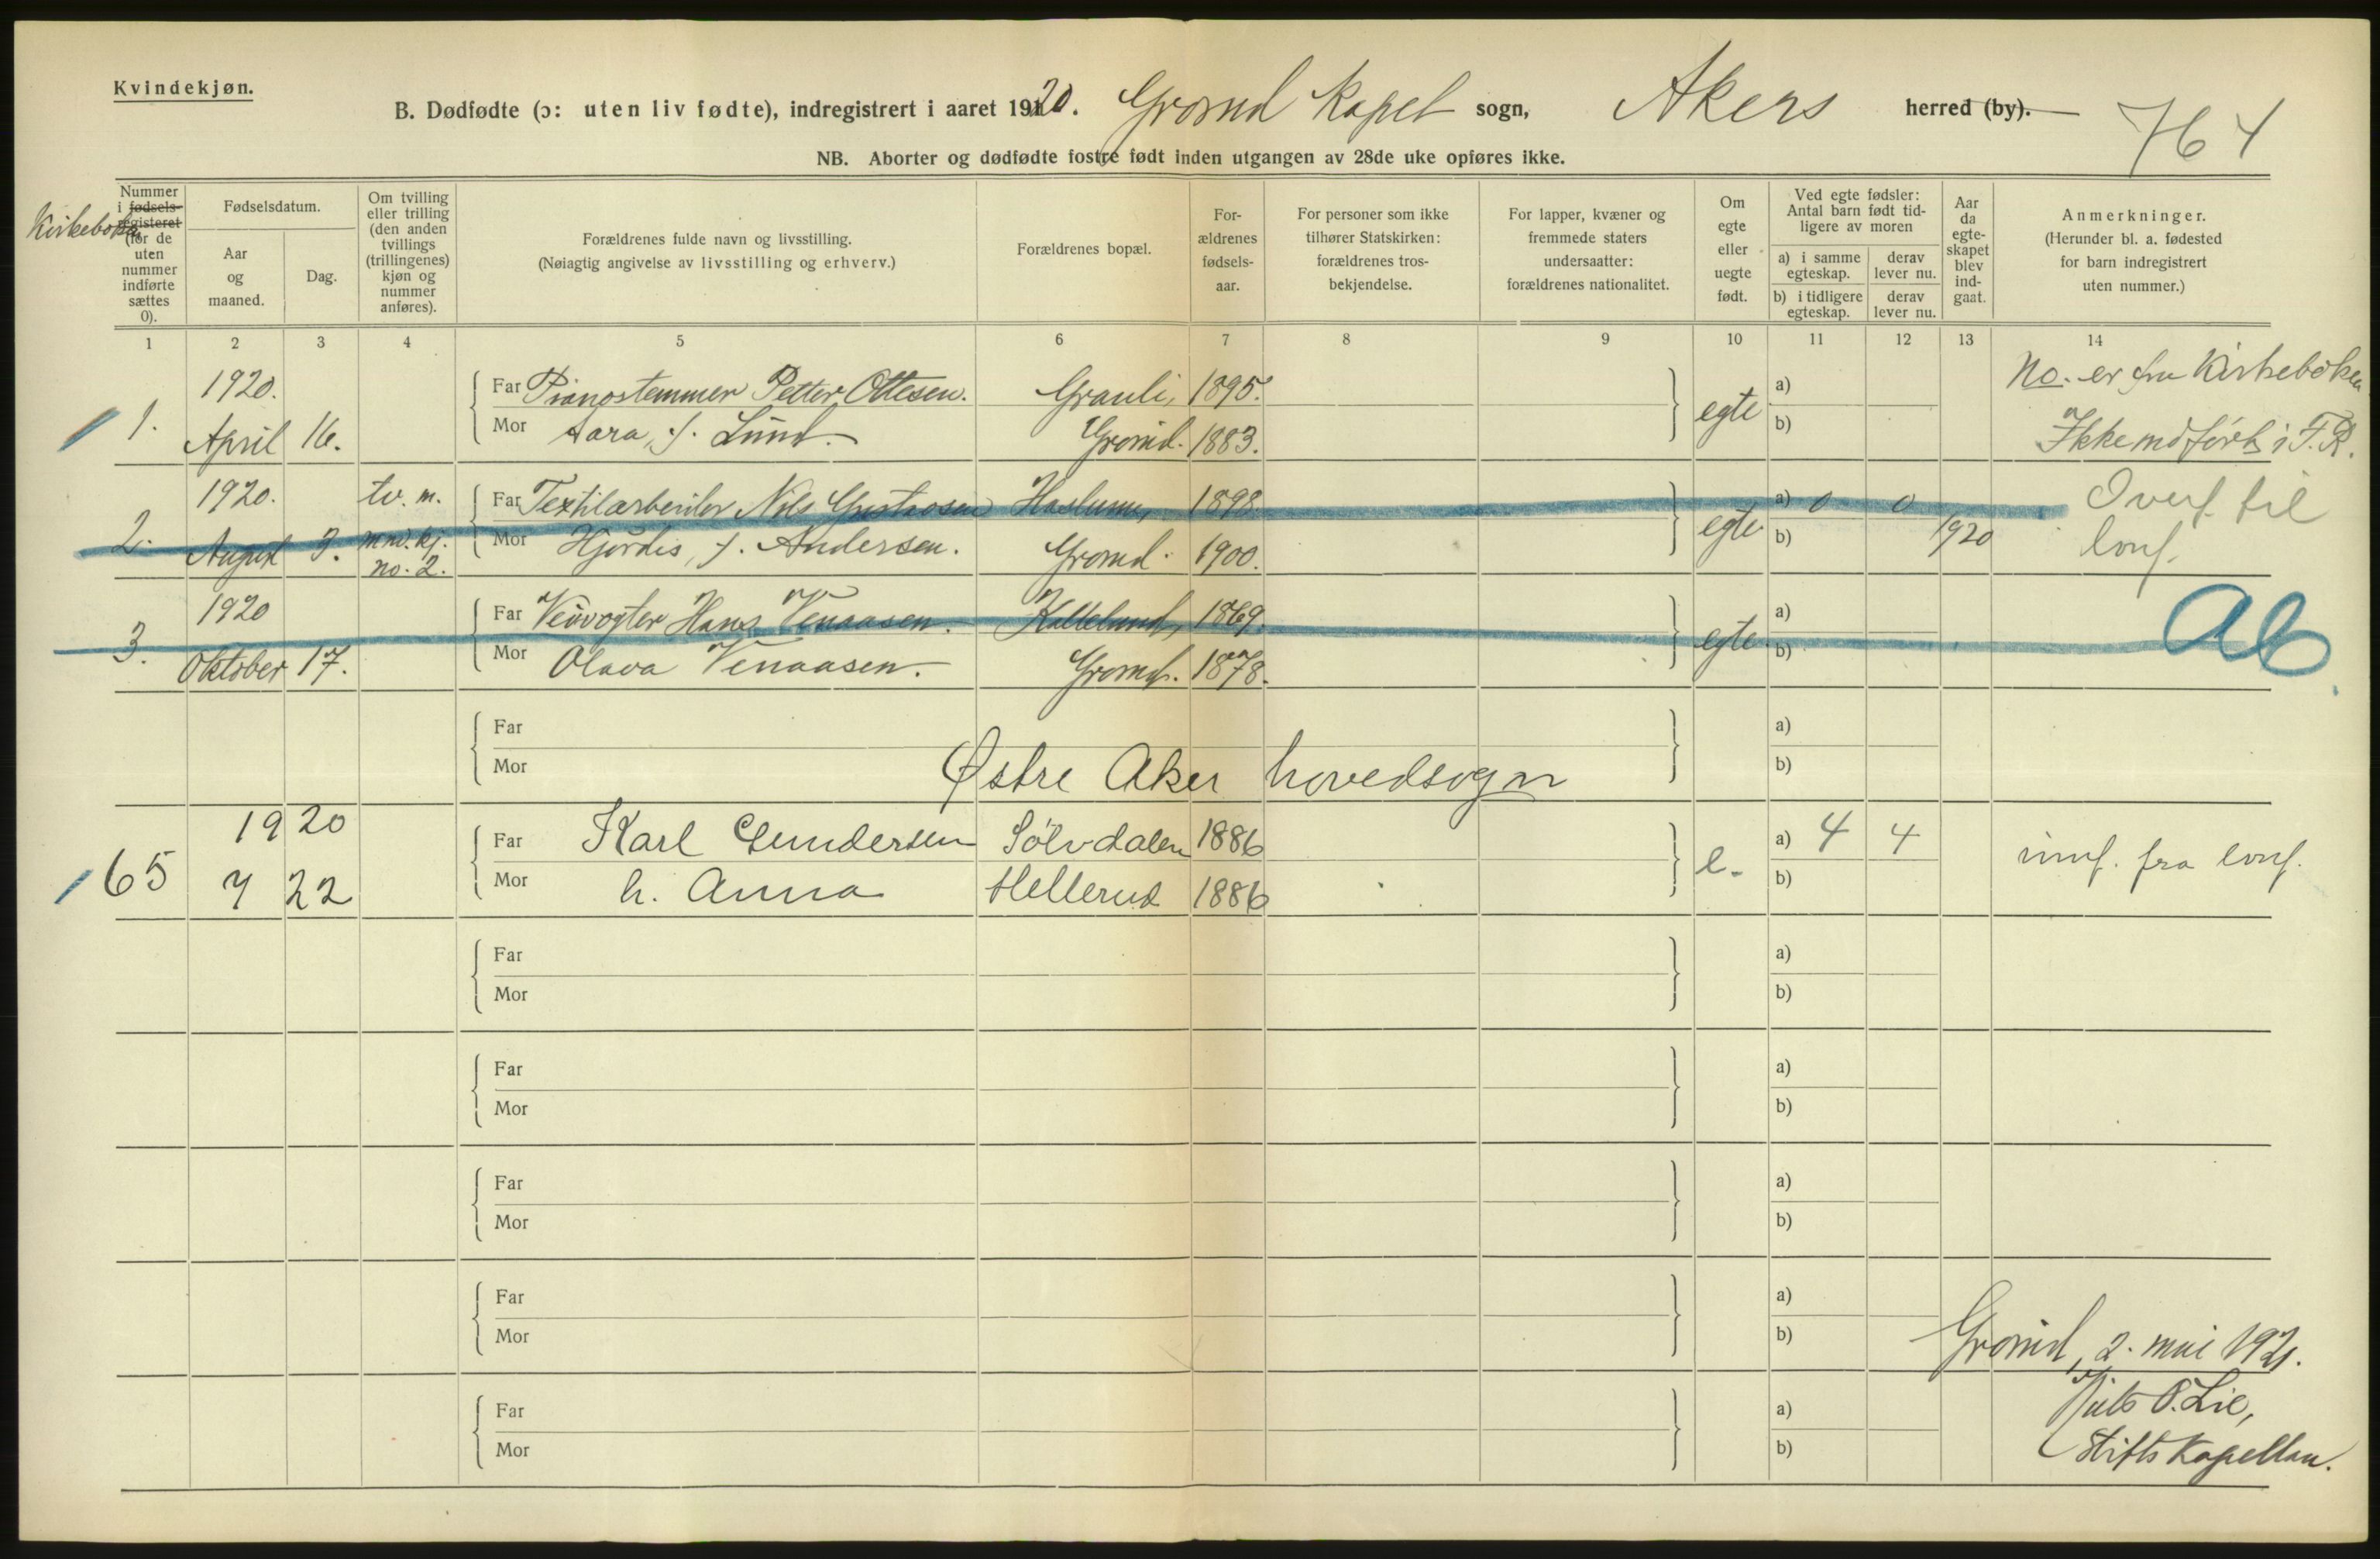 Kvindekjøn.
B. Dødfødte (ɔ: uten liv fødte), indregistrert i aaret 1920. Grorud Kapel sogn, Akers herred (by).
764
NB. Aborter og dødfødte fostre født inden utgangen av 28de uke opføres ikke.
Nummer i fødsels-registeret (for de uten nummer indførte sættes 0).
Kirkeboka
Fødselsdatum.
Aar og maaned.
Dag.
Om tvilling eller trilling (den anden tvillings (trillingenes) kjøn og nummer anføres).
Forældrenes fulde navn og livsstilling.
(Nøiagtig angivelse av livsstilling og erhverv.)
Forældrenes bopæl.
For-ældrenes fødsels-aar.
For personer som ikke tilhører Statskirken: forældrenes tros-bekjendelse.
For lapper, kvæner og fremmede staters undersaatter: forældrenes nationalitet.
Om egte eller uegte født.
Ved egte fødsler: Antal barn født tid-ligere av moren
a) i samme egteskap.
derav lever nu.
b) i tidligere egteskap.
derav lever nu.
Aar da egte-skapet blev ind-gaat.
Anmerkninger.
(Herunder bl. a. fødested for barn indregistrert uten nummer.)
1 2 3 4 5 6 7 8 9 10 11 12 13 14
1920. Far Pianostemmer Petter Ottesen. Grauli, 1895. a) No. er fra Kirkeboken
1. April 16. Mor Aara, f. Lund. Grorud. 1883. egte b) Ikke indført i F.R.
1920. tv. m. Far Textilarbeider Nils Gustavsen Haslum, 1898 a) 0 0 Overf. til
2. August 3. mnd. kj. no. 2. Mor Hjørdis, f. Andersen. Grorud. 1900. egte b) 1920
1920 Far Veivogter Hans Venaasen. Kallelund, 1869. a)
3. Oktober 17. Mor Olava Venaasen. Grorud. 1878. egte b) Ab.
Far a)
Mor b)
Østre Aker hovedsogn
1920 Far Karl Gundersen Sölvdalen 1886 a) 4 4
65 7 22 Mor h. Anna Hellerud 1886 e. b) fra
Far a)
Mor b)
Far a)
Mor b)
Far a)
Mor b)
Far a)
Mor b)
Grorud, 2. mai 1921.
Far a)
Mor b)
O. Lie,
Stiftskapellan.